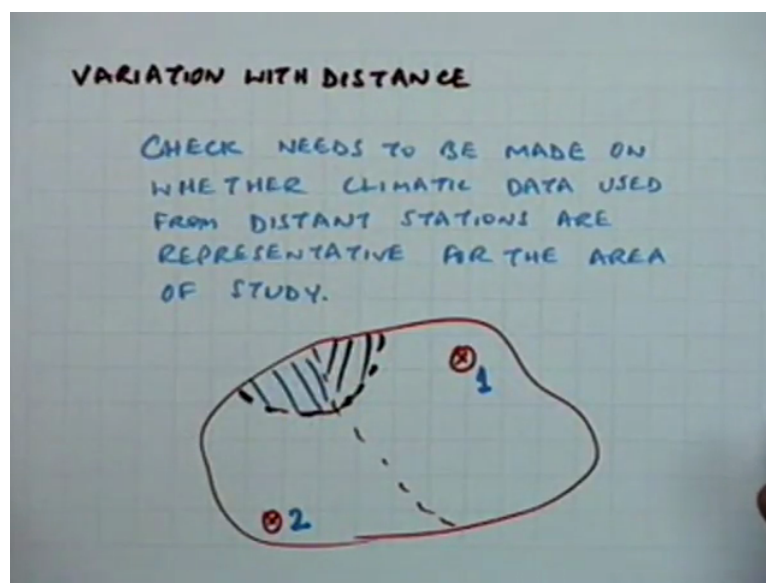 VARIATION WITH DISTANCE
CHECK NEEDS TO BE MADE ON
WHETHER CLIMATIC DATA USED
FROM DISTANT STATIONS ARE
REPRESENTATIVE FOR THE AREA
OF STUDY.
1
2